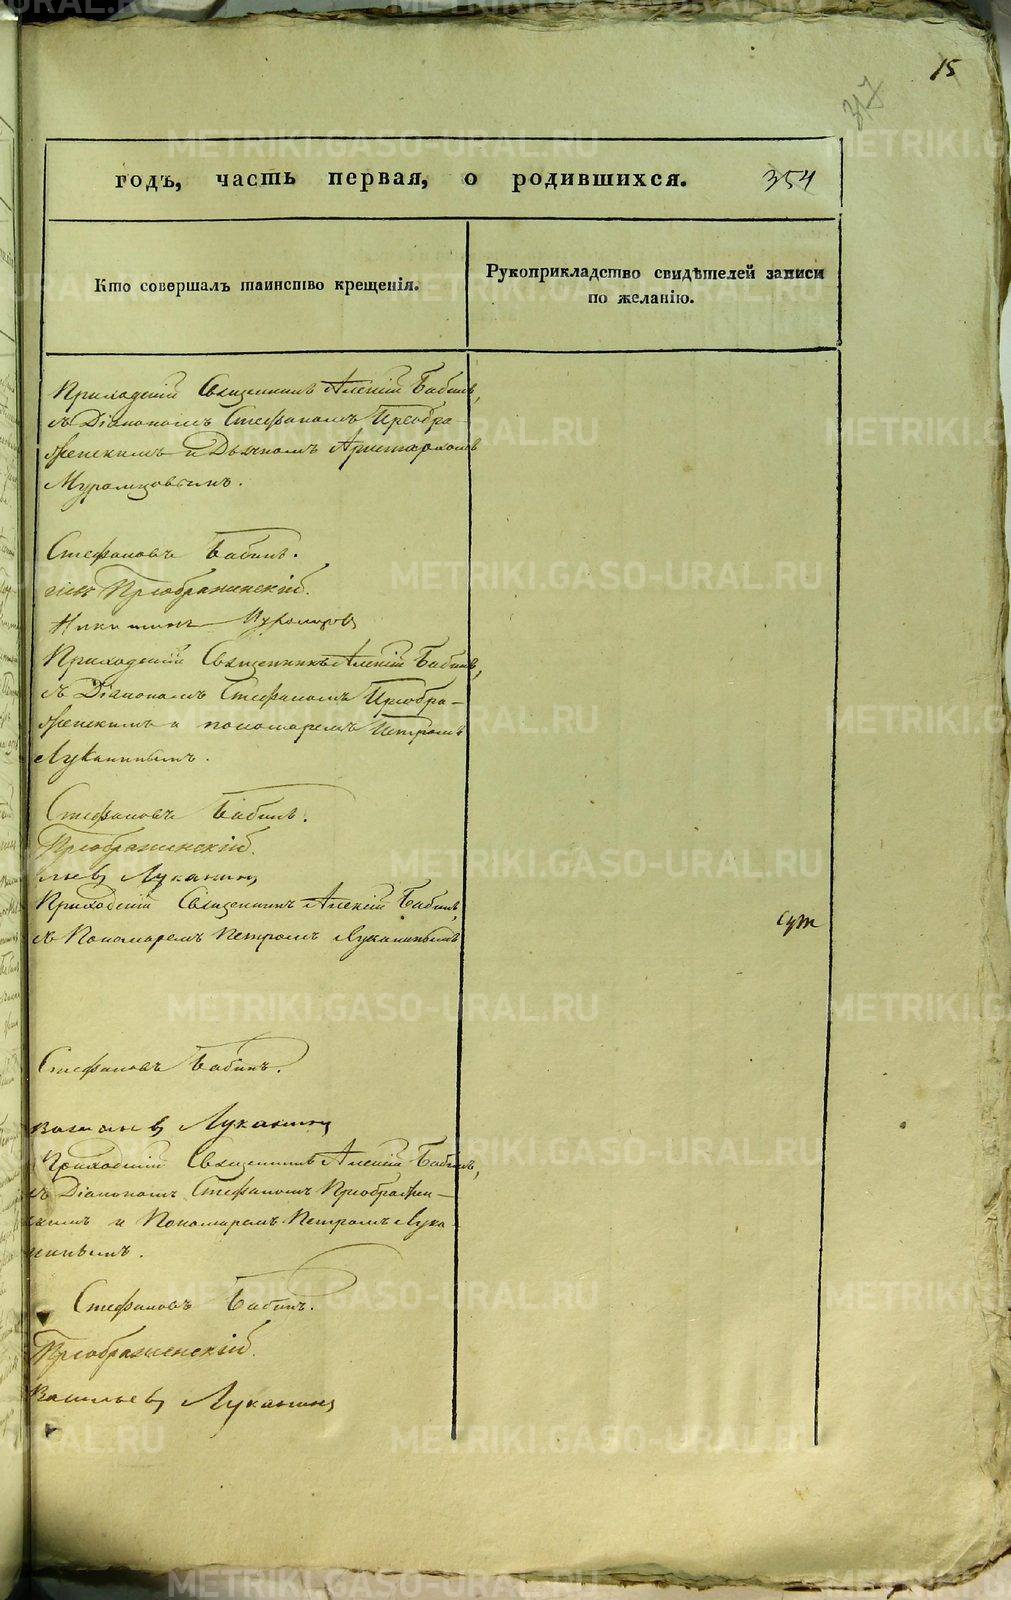 15
317
годъ, часть первая, о родившихся. 354
Кто совершалъ таинство крещенія.
Рукоприкладство свидѣтелей записи
по желанію.
Приходскій Священникъ Алексій Бабинъ,
съ Діакономъ Стефаномъ Преобра-
женскимъ и Дьячкомъ Аристархомъ
Муромцовымъ.
Стефановъ Бабинъ.
Преображенскій.
Никитинъ Муромцовъ
Приходскій Священникъ Алексій Бабинъ,
съ Діакономъ Стефаномъ Преобра-
женскимъ и пономаремъ Петромъ
Луканинымъ.
Стефановъ Бабинъ.
Преображенскій.
Луканинъ
Приходскій Священникъ Алексій Бабинъ,
съ Пономаремъ Петромъ Луканинымъ
Стефановъ Бабинъ.
Васильевъ Луканинъ
Приходскій Священникъ Алексій Бабинъ,
съ Діакономъ Стефаномъ Преображен-
скимъ и Пономаремъ Петромъ Лука-
нинымъ.
Стефановъ Бабинъ.
Преображенскій.
Васильевъ Луканинъ
METRIKI.GASO-URAL.RU